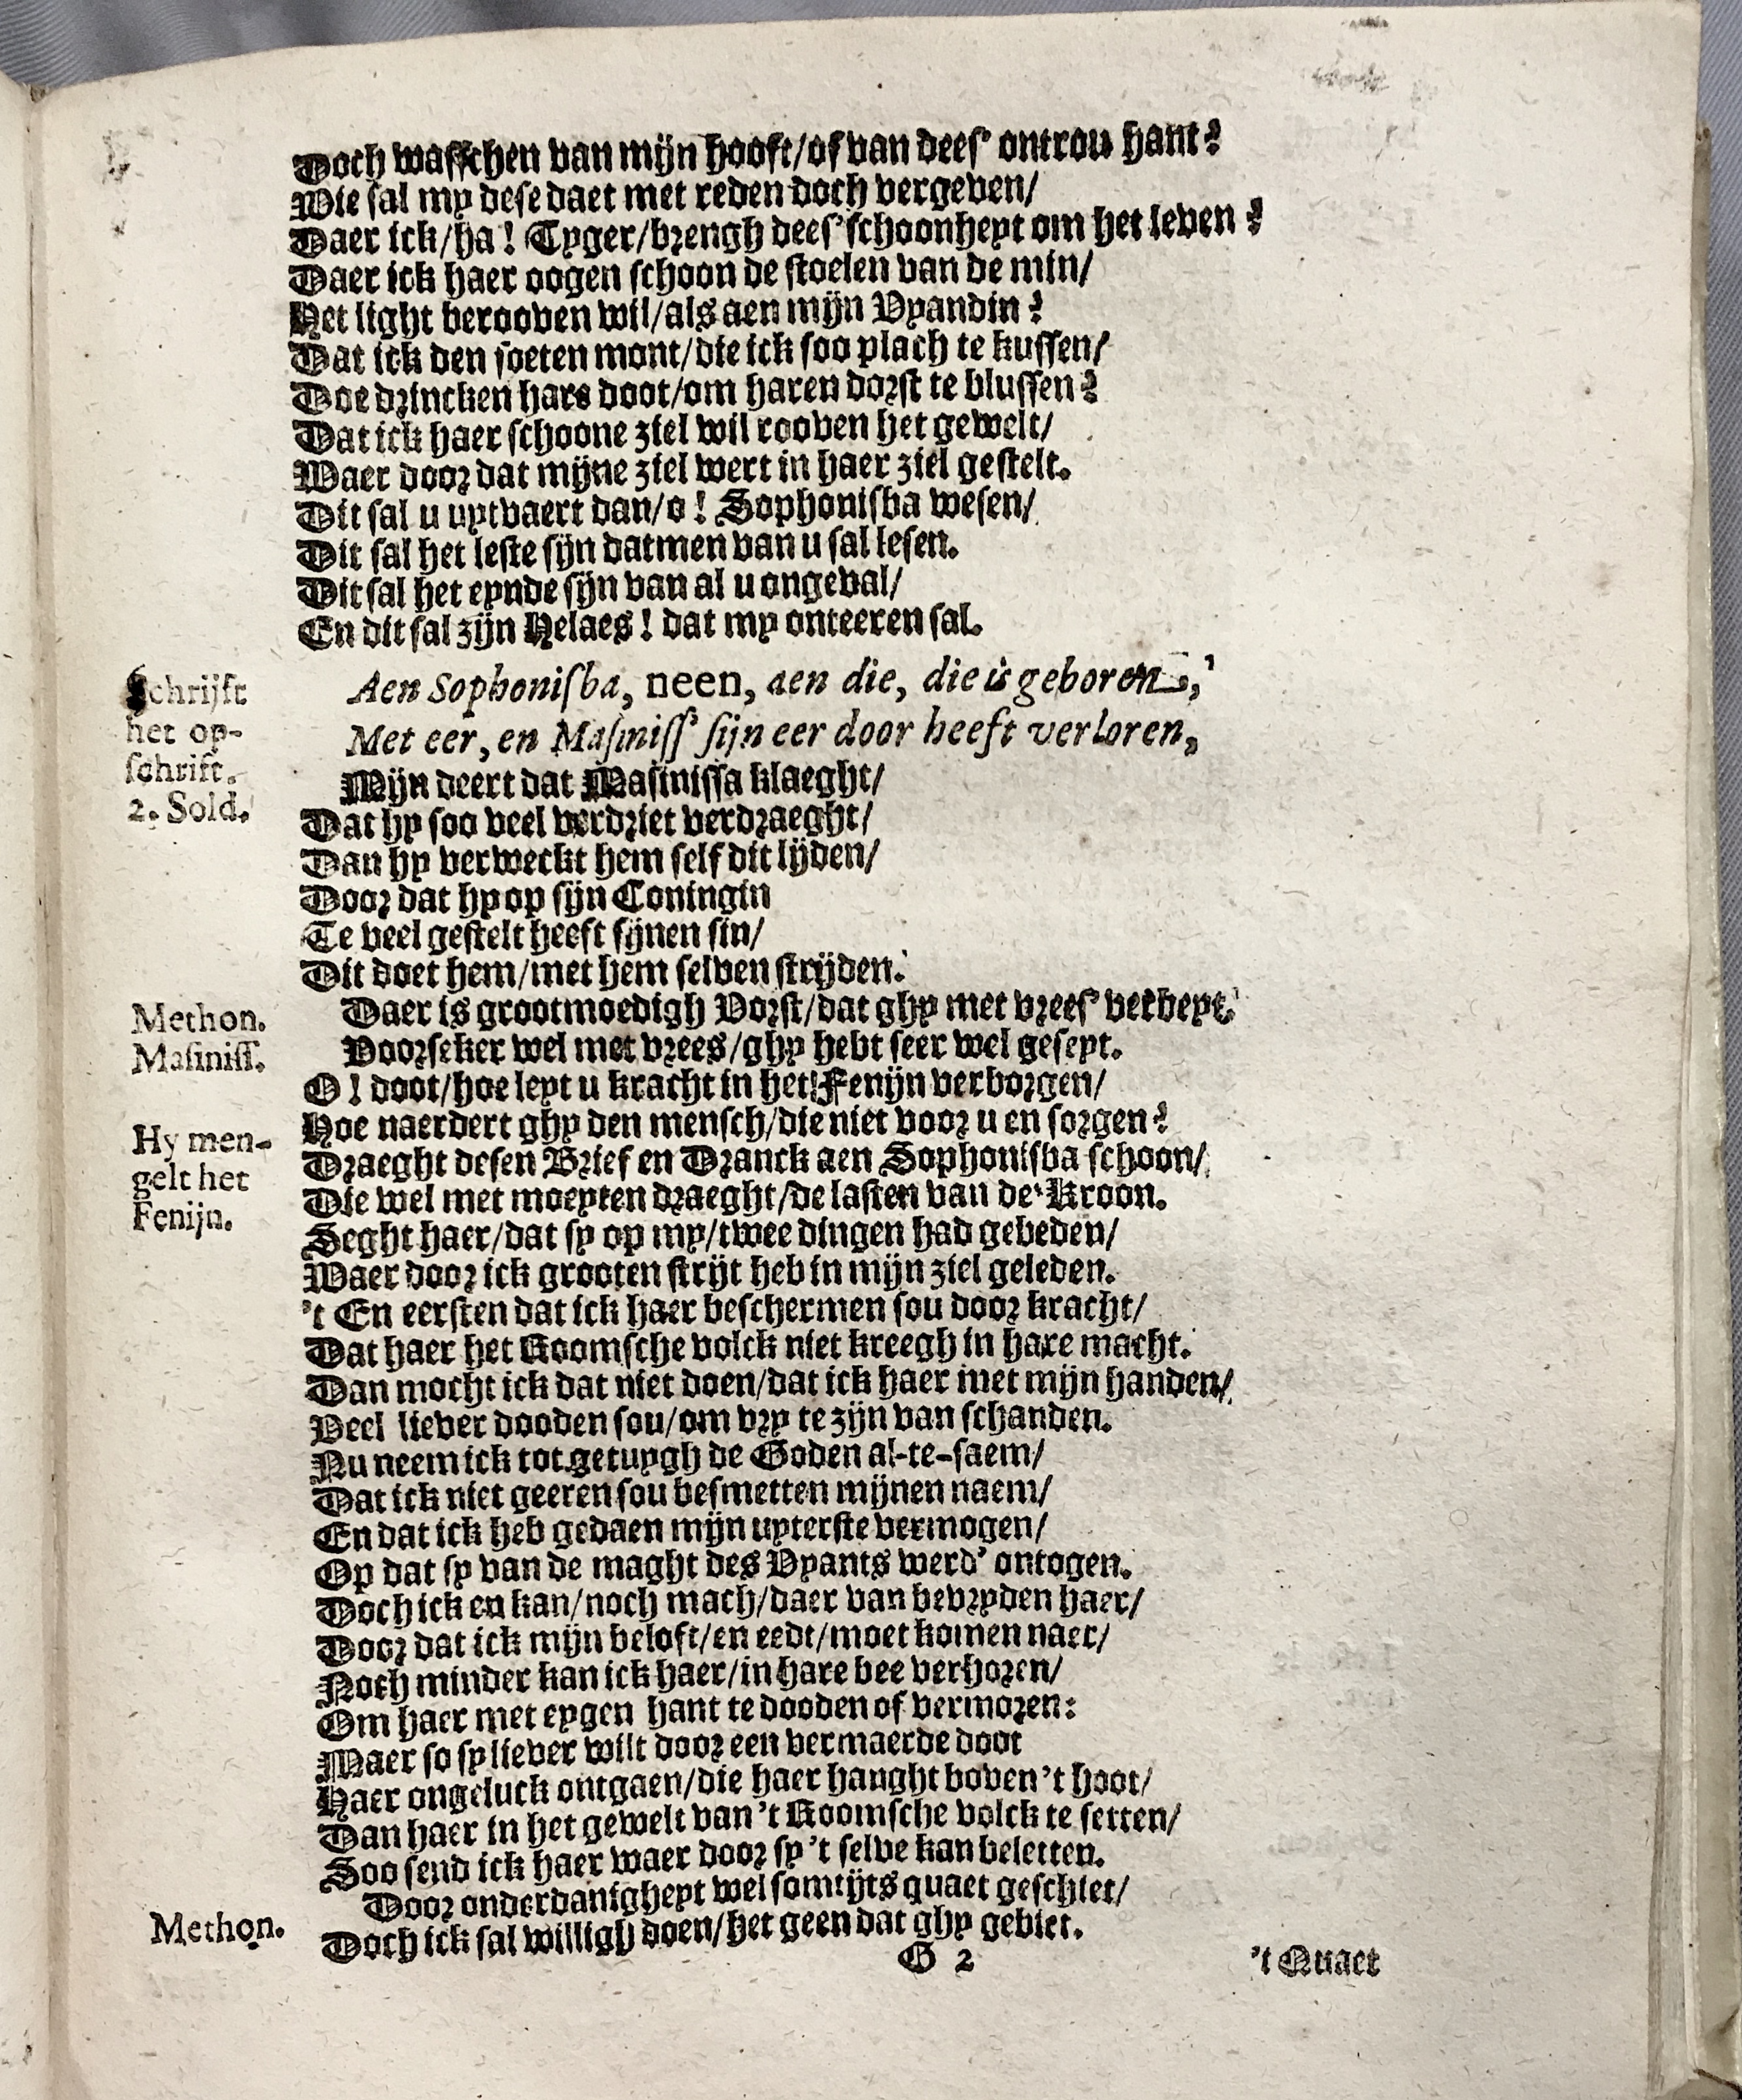 Doch wasschen van mijn hooft/of van dees' ontrou hant?
Wie sal my dese daet met reden doch vergeven/
Daer ick/ha! Tyger/brengh dees' schoonheyt om het leven?
Daer ick haer oogen schoon de stoelen van de min/
Het light berooven wil/als aen mijn Vyandin?
Dat ick den soeten mont/die ick soo plach te kussen/
Doe drincken hare doot/om haren dorst te blussen?
Dat ick haer schoone ziel wil rooven het gewelt/
Waer door dat mijne ziel wert in haer ziel gestelt.
Dit sal u uytvaert dan/o! Sophonisba wesen/
Dit sal het leste sijn datmen van u sal lesen.
Dit sal het eynde sijn van al u ongeval/
En dit sal zijn Helaes! dat my onteeren sal.
Schrijft het op-schrift.
Aen Sophonisba, neen, aen die, die is geboren,
Met eer, en Masiniss' sijn eer door heeft verloren,
2. Sold.
Mijn deert dat Masinissa klaeght/
Dat hy soo veel verdriet verdraeght/
Dan hy verweckt hem self dit lijden/
Door dat hy op sijn Coningin
Te veel gestelt heeft sijnen sin/
Dit doet hem/met hem selven strijden.
Methon. Daer is grootmoedigh Vorst/dat ghy met vrees' verbeyt.
Masiniss. Voorseker wel met vrees/ghy hebt seer wel geseyt.
O! doot/hoe leyt u kracht in het Fenijn verborgen/
Hoe naerdert ghy den mensch/die niet voor u en sorgen?
Hy men-gelt het Fenijn.
Draeght desen Brief en Dranck aen Sophonisba schoon/
Die wel met moeyten draeght/de lasten van de Kroon.
Seght haer/dat sy op my/twee dingen had gebeden/
Waer door ick grooten strijt heb in mijn ziel geleden.
't En eersten dat ick haer beschermen sou door kracht/
Dat haer het Roomsche volck niet kreegh in hare macht.
Dan mocht ick dat niet doen/dat ick haer met mijn handen/
Veel liever dooden sou/om vry te zijn van schanden.
Nu neem ick tot getuygh de Goden al-te-saem/
Dat ick niet geeren sou besmetten mijnen naem/
En dat ick heb gedaen mijn uyterste vermogen/
Op dat sy van de maght des Vyants werd' ontogen.
Doch ick en kan/noch mach/daer van bevryden haer/
Door dat ick mijn beloft/en eedt/moet komen naer/
Noch minder kan ick haer/in hare bee verhoren/
Om haer met eygen hant te dooden of vermoren:
Maer so sy liever wilt door een vermaerde doot
Haer ongeluck ontgaen/die haer hanght boven 't hoot/
Dan haer in het gewelt van 't Roomsche volck te setten/
Soo send ick haer waer door sy 't selve kan beletten.
Methon. Door onderdanigheyt wel somtijts quaet geschiet/
Doch ick sal willigh doen/het geen dat ghy gebiet.
G 2
't Quaet